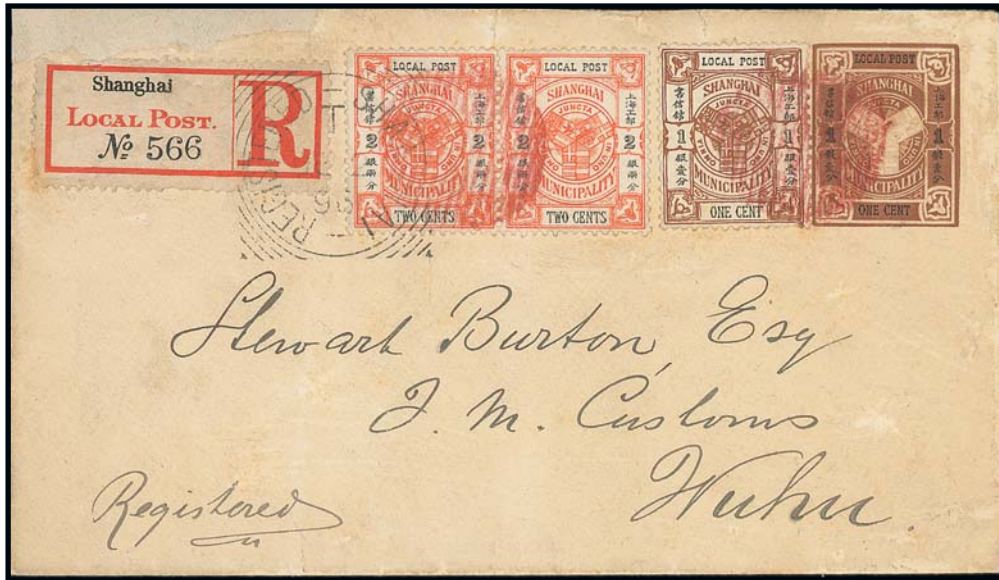 Shanghai
LOCAL POST.
№ 566
R
LOCAL POST
SHANGHAI
JUNCTA
MUNICIPALITY
2 2
TWO CENTS
LOCAL POST
SHANGHAI
JUNCTA
MUNICIPALITY
2 2
TWO CENTS
LOCAL POST
SHANGHAI
JUNCTA IN UNO OMNIA
MUNICIPALITY
書信館
1
銀壹分
上海工部
1
銀壹分
ONE CENT
LOCAL POST
SHANGHAI
MUNICIPALITY
1 1
ONE CENT
Stewart Burton, Esq
I. M. Customs
Wuhu.
Registered